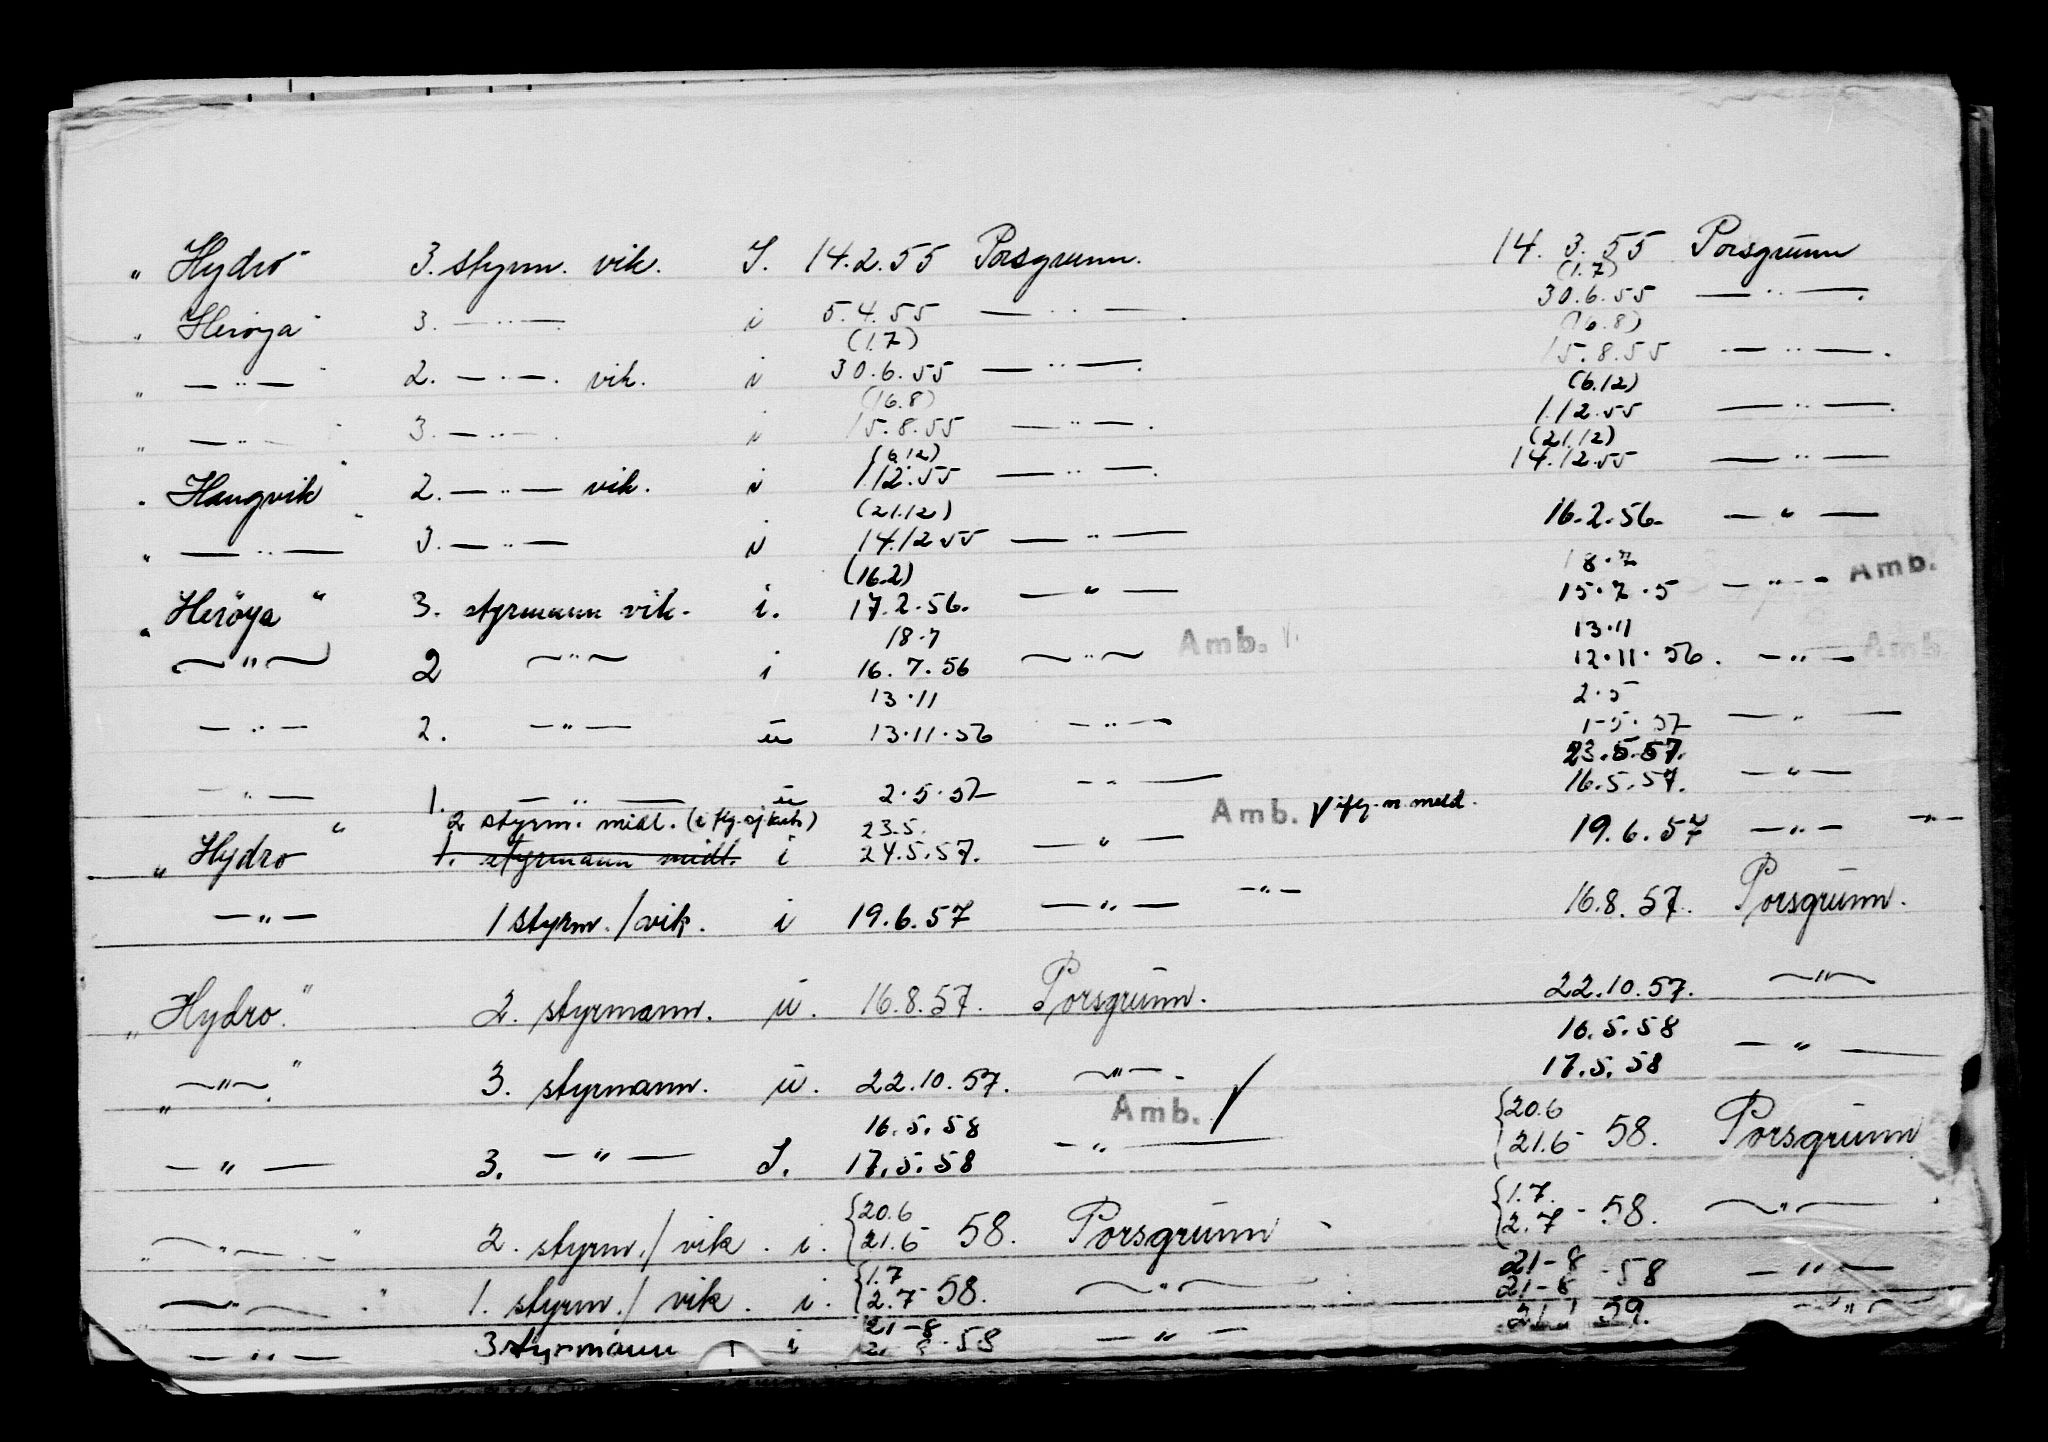 „ Hydro" 3. styrm. vik. I. 14.2.55 Porsgrunn. 14. 3. 55 Porsgrunn
(1.7)
„ Herøya" 3. — " — i 5.4.55 — " — 30.6.55 — " —
(1.7) (16.8)
„ — " — " 2. — " — vik. i 30.6.55 — " — 15.8.55 — " —
(16.8) (6.12)
„ — " — " 3. — " — i 15.8.55 — " — 1.12.55 — " —
(6.12) (21.12)
„ Haugvik" 2. — " — vik. i 1.12.55 — " — 14.12.55 — " —
(21.12)
„ — " — " 3. — " — i 14.12.55 — " — 16.2.56. — " —
(16.2) 18.7
„ Herøya" 3. styrmann vik. i. 17.2.56. — " — 15.7.5 — " — Amb.
18.7 13.11
— " — 2 — " — i 16.7.56 — " — Amb. 12.11.56. — " — Amb.
13.11 2.5
— " — 2. — " — u 13.11.56 — " — 1-5.57 — " —
23.5.57.
— " — 1. — " — u 2.5.57 — " — 16.5.57. — " —
2 styrm. midl. 23.5. Amb. √
„ Hydro" 1. styrmann midl. i 24.5.57. — " — 19.6.57 — " — — " —
— " — 1 styrm./vik. i 19.6.57 — " — — " — 16.8.57. Porsgrunn.
„ Hydro." 2. styrmann. u. 16.8.57. Porsgrunn. 22.10.57. — " —
16.5.58
„ — " —." 3. styrmann. u. 22.10.57. — " — 17.5.58 — " —
16.5.58 Amb. √ 20.6
— " — 3. — " — I. 17.5.58 — " — 21.6 - 58. Porsgrunn
20.6 1.7.
„ — " — " 2. styrm./vik. i. 21.6 - 58. Porsgrunn 2.7 - 58. — " —
1.7 21-8
— " — " 1. styrm./vik. i. 2.7 - 58. — " — 21-8 - 58 — " —
21-8
— " — 3 styrmann i 58 — " — 59. — " —